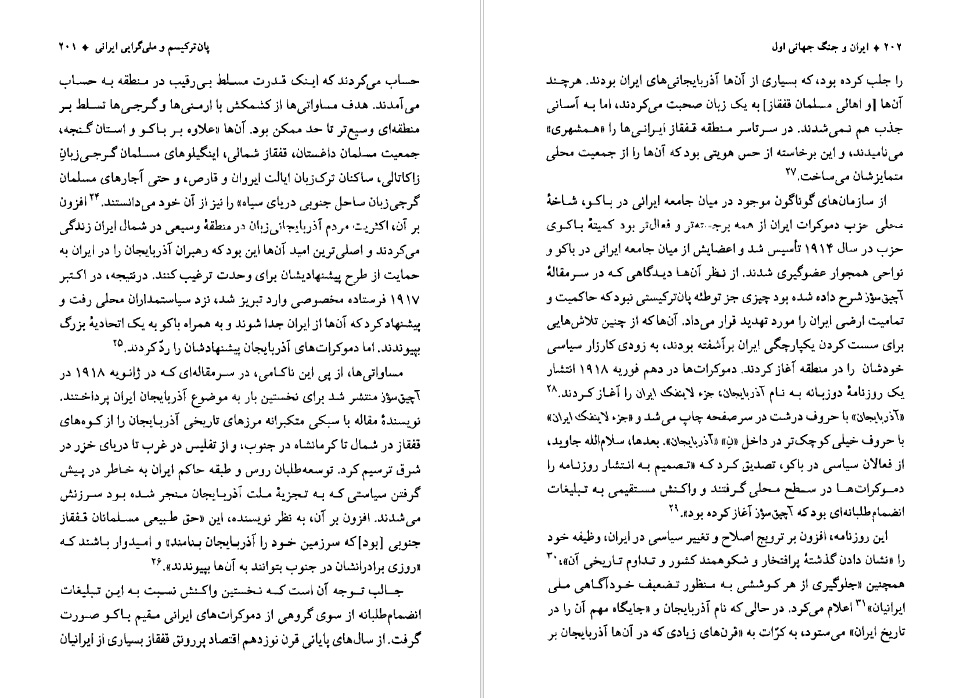 پان‌ترکیسم و ملی‌گرایی ایرانی ♦ ۲۰۱
حساب می‌کردند که اینک قدرت مسلط بی‌رقیب در منطقه به حساب
می‌آمدند. هدف مساواتی‌ها از کشمکش با ارمنی‌ها و گرجی‌ها تسلط بر
منطقه‌ای وسیع‌تر تا حد ممکن بود. آن‌ها «علاوه بر باکو و استان گنجه،
جمعیت مسلمان داغستان، قفقاز شمالی، اینگیلوهای مسلمان گرجی‌زبانِ
زاکاتالی، ساکنان ترک‌زبان ایالت ایروان و قارص، و حتی آجارهای مسلمان
گرجی‌زبان ساحل جنوبی دریای سیاه» را نیز از آن خود می‌دانستند.۲۴ افزون
بر آن، اکثریت مردم آذربایجانی‌زبان در منطقهٔ وسیعی در شمال ایران زندگی
می‌کردند و اصلی‌ترین امید آن‌ها این بود که رهبران آذربایجان را در ایران به
حمایت از طرح پیشنهادیشان برای وحدت ترغیب کنند. درنتیجه، در اکتبر
۱۹۱۷ فرستاده مخصوصی وارد تبریز شد، نزد سیاستمداران محلی رفت و
پیشنهاد کرد که آن‌ها از ایران جدا شوند و به همراه باکو به یک اتحادیهٔ بزرگ
بپیوندند. اما دموکرات‌های آذربایجان پیشنهادشان را ردّ کردند.۲۵
مساواتی‌ها، از پی این ناکامی، در سرمقاله‌ای که در ژانویه ۱۹۱۸ در
آچیق‌سؤز منتشر شد برای نخستین بار به موضوع آذربایجان ایران پرداختند.
نویسندهٔ مقاله با سبکی متکبرانه مرزهای تاریخی آذربایجان را از کوه‌های
قفقاز در شمال تا کرمانشاه در جنوب، و از تفلیس در غرب تا دریای خزر در
شرق ترسیم کرد. توسعه‌طلبان روس و طبقه حاکم ایران به خاطر در پیش
گرفتن سیاستی که به تجزیهٔ ملت آذربایجان منجر شده بود سرزنش
شدند. افزون بر آن، به نظر نویسنده، این «حق طبیعی مسلمانان قفقاز
جنوبی [بود]که سرزمین خود را آذربایجان بنامند» و امیدوار باشند که
«روزی برادرانشان در جنوب بتوانند به آن‌ها بپیوندند».۲۶
جالب توجه آن است که نخستین واکنش نسبت به این تبلیغات
انضمام‌طلبانه از سوی گروهی از دموکرات‌های ایرانی مقیم باکو صورت
گرفت. از سال‌های پایانی قرن نوزدهم اقتصاد پررونق قفقاز بسیاری از ایرانیان
۲۰۲ ♦ ایران و جنگ جهانی اول
را جلب کرده بود، که بسیاری از آن‌ها آذربایجانی‌های ایران بودند. هرچند
آن‌ها [و اهالی مسلمان قفقاز] به یک زبان صحبت می‌کردند، اما به آسانی
جذب هم نمی‌شدند. در سرتاسر منطقه قفقاز ایرانی‌ها را «همشهری»
می‌نامیدند، و این برخاسته از حس هویتی بود که آن‌ها را از جمعیت محلی
متمایزشان می‌ساخت.۲۷
از سازمان‌های گوناگون موجود در میان جامعه ایرانی در باکو، شاخهٔ
محلی حزب دموکرات ایران از همه برجسته‌تر و فعال‌تر بود کمیتهٔ باکوی
حزب در سال ۱۹۱۴ تأسیس شد و اعضایش از میان جامعه ایرانی در باکو و
نواحی همجوار عضوگیری شدند. از نظر آن‌ها دیدگاهی که در سرمقالهٔ
آچیق‌سؤز شرح داده شده بود چیزی جز توطئه پان‌ترکیستی نبود که حاکمیت و
تمامیت ارضی ایران را مورد تهدید قرار می‌داد. آن‌ها که از چنین تلاش‌هایی
برای سست کردن یکپارچگی ایران برآشفته بودند، به زودی کارزار سیاسی
خودشان را در منطقه آغاز کردند. دموکرات‌ها در دهم فوریه ۱۹۱۸ انتشار
یک روزنامهٔ دوزبانه به نام آذربایجان، جزء لاینفک ایران را آغاز کردند.۲۸
«آذربایجان» با حروف درشت در سرصفحه چاپ می‌شد و «جزء لاینفک ایران»
با حروف خیلی کوچک‌تر در داخل «ن» «آذربایجان». بعدها، سلام‌الله جاوید،
از فعالان سیاسی در باکو، تصدیق کرد که «تصمیم به انتشار روزنامه را
دموکرات‌ها در سطح محلی گرفتند و واکنش مستقیمی به تبلیغات
انضمام‌طلبانه‌ای بود که آچیق‌سؤز آغاز کرده بود».۲۹
این روزنامه، افزون بر ترویج اصلاح و تغییر سیاسی در ایران، وظیفه خود
را «نشان دادن گذشتهٔ پرافتخار و شکوهمند کشور و تداوم تاریخی آن»،۳۰
همچنین «جلوگیری از هر کوششی به منظور تضعیف خودآگاهی ملی
ایرانیان»۳۱ اعلام می‌کرد. در حالی که نام آذربایجان و «جایگاه مهم آن را در
تاریخ ایران» می‌ستود، به کرّات به «قرن‌های زیادی که در آن‌ها آذربایجان بر